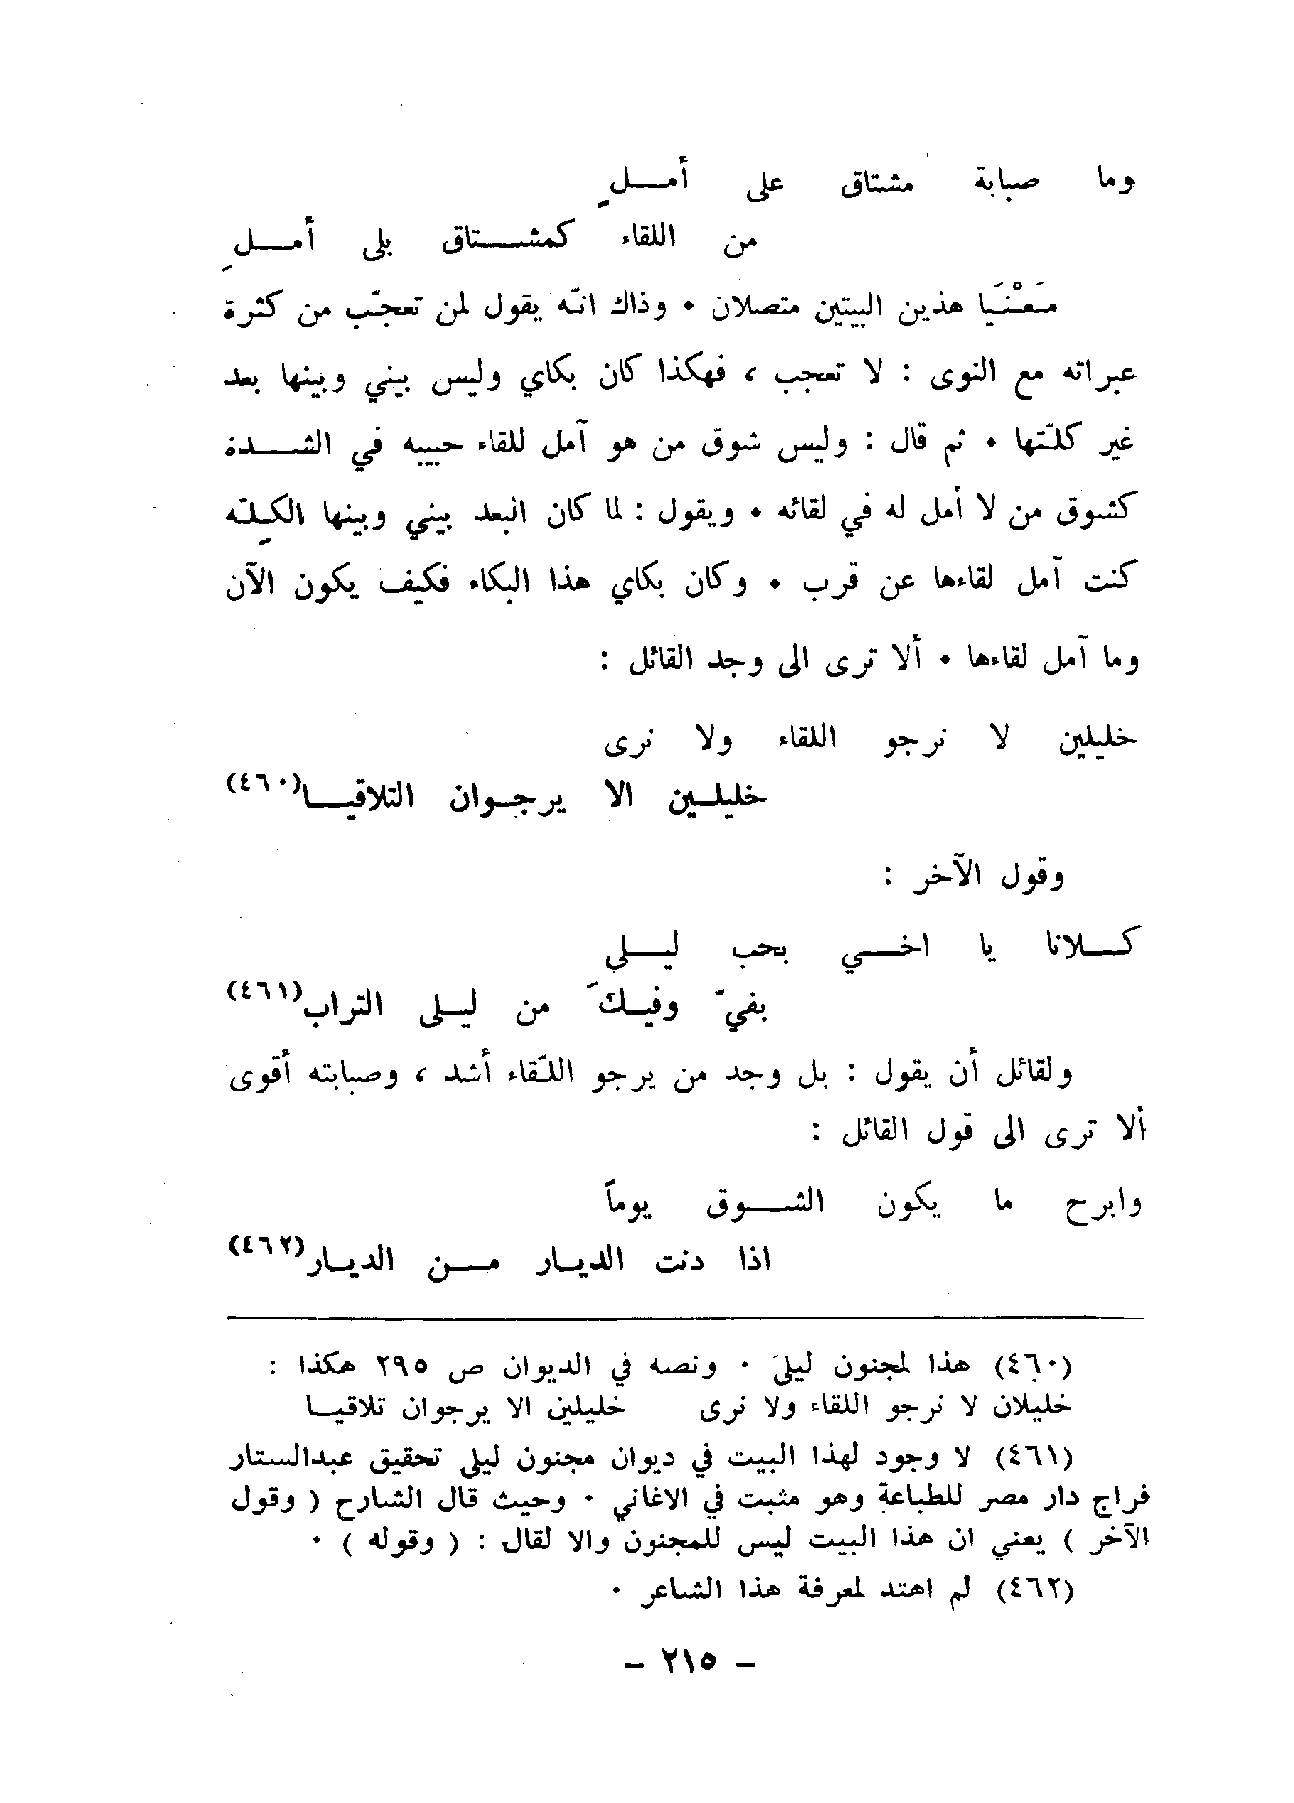 وما صبابة مشتاق على أمـــلٍ
من اللقاء كمشـــتاق بلى أمـــلٍ
مَعْنَيَا هذين البيتين متصلان ٠ وذاك انّه يقول لمن تعجّب من كثرة
عبراته مع النوى : لا تعجب ، فهكذا كان بكاي وليس بيني وبينها بعد
غير كلّتها ٠ ثم قال : وليس شوق من هو آمل للقاء حبيبه في الشـــدة
كشوق من لا أمل له في لقائه ٠ ويقول : لما كان البعد بيني وبينها الكِلّه
كنت آمل لقاءها عن قرب ٠ وكان بكاي هذا البكاء فكيف يكون الآن
وما آمل لقاءها ٠ ألا ترى الى وجد القائل :
خليلين لا نرجو اللقاء ولا نرى
خليلـين الا يرجـوان التلاقيـــا(٤٦٠)
وقول الآخر :
كـــلانا يا اخـــي بحب ليـــلى
بفيّ وفيـكَ من ليـلى التراب(٤٦١)
ولقائل أن يقول : بل وجد من يرجو اللّقاء أشد ، وصبابته أقوى
ألا ترى الى قول القائل :
وابرح ما يكون الشـــوق يوماً
اذا دنت الديـار مـــن الديـار(٤٦٢)
(٤٦٠) هذا لمجنون ليلى ٠ ونصه في الديوان ص ٢٩٥ هكذا :
خليلان لا نرجو اللقاء ولا نرى خليلين الا يرجوان تلاقيـــا
(٤٦١) لا وجود لهذا البيت في ديوان مجنون ليلى تحقيق عبدالستار
فراج دار مصر للطباعة وهو مثبت في الاغاني ٠ وحيث قال الشارح ( وقول
الآخر ) يعني ان هذا البيت ليس للمجنون والا لقال : ( وقوله ) ٠
(٤٦٢) لم اهتد لمعرفة هذا الشاعر ٠
– ٢١٥ –